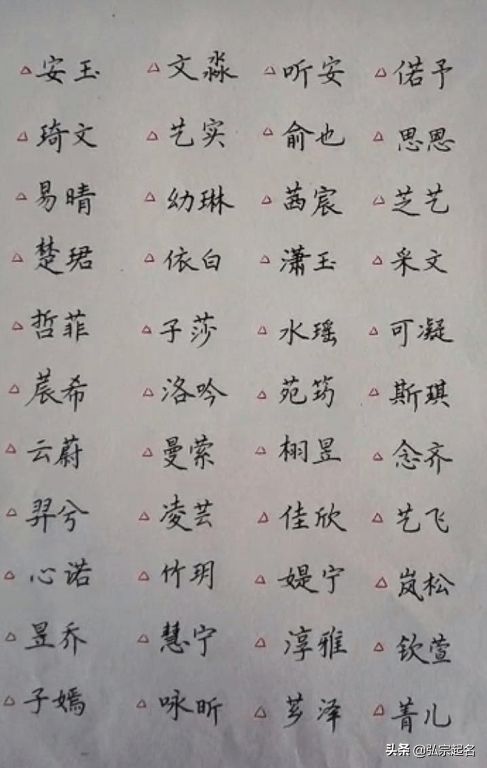 △安玉 △文淼 △听安 △偌予
△琦文 △艺实 △俞也 △思恩
△易晴 △幼琳 △茜宸 △芝艺
△楚珺 △依白 △潇玉 △采文
△哲菲 △子莎 △水瑶 △可凝
△晨希 △洛吟 △苑筠 △斯琪
△云蔚 △曼萦 △栩昱 △念齐
△羿兮 △凌芸 △佳欣 △艺飞
△心诺 △竹玥 △媞宁 △岚松
△昱乔 △慧宁 △淳雅 △钦萱
△子嫣 △咏昕 △芗泽 △菁儿
头条 @弘宗起名